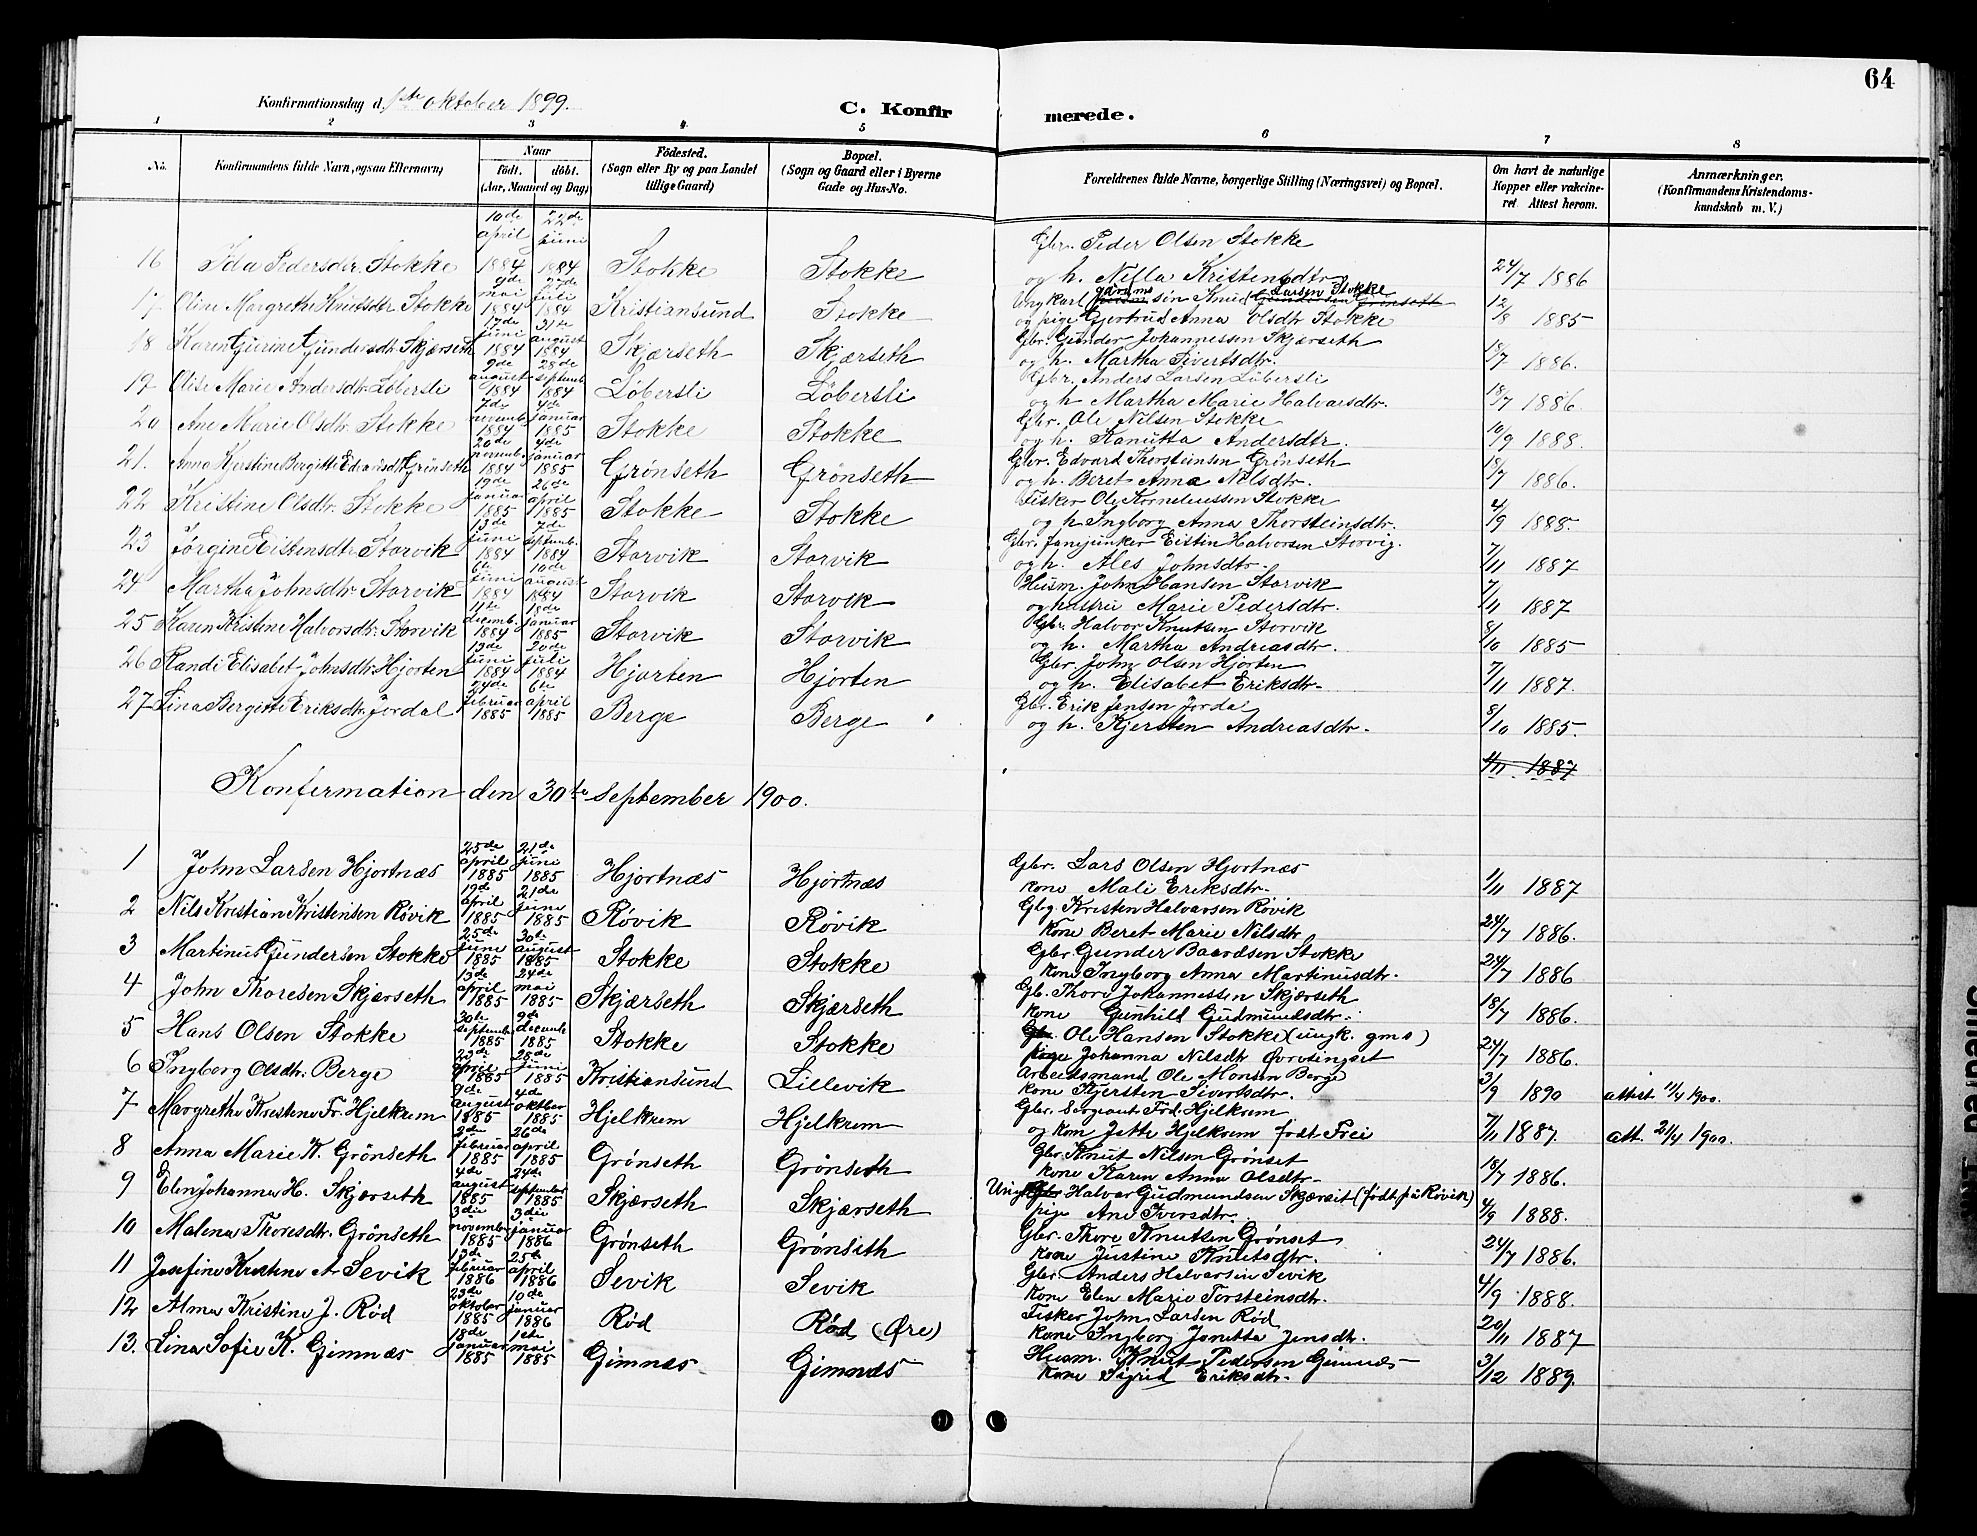 64
Konfirmationsdag d. 1ste oktober 1899. C. Konfirmerede.
1 2 3 4 5 6 7 8
No. Konfirmandens fulde Navn, ogsaa Efternavn) Naar født. døbt. (Aar, Maaned og Dag) Fødested. (Sogn eller By og paa Landet tillige Gaard) Bopæl. (Sogn og Gaard eller i Byerne Gade og Hus-No. Forældrenes fulde Navne, borgerlige Stilling (Næringsvei) og Bopæl. Om havt de naturlige Kopper eller vakcineret. Attest herom. Anmærkninger. (Konfirmandens Kristendomskundskab m. V.)
16 Ida Pedersdtr. Stokke 10de april 1884 22de juni 1884 Stokke Stokke Gbr. Peder Olsen Stokke
og h. Nilla Kristensdtr. 24/7 1886
17 Oline Margrethe Knutsdtr Stokke 9de mai 1884 27de juli 1884 Kristiansund Stokke Ungkarl Knud Larsen Stokke
og pige Gjertrud Anna Olsdtr Stokke 12/8 1885
18 Karen Gurine Gundersdtr Skjærseth 17de juni 1884 31te august 1884 Skjærseth Skjærseth Gbr. Gunder Johannessen Skjærseth
og h. Martha Sivertsdtr. 18/7 1886.
19 Olise Marie Andersdtr. Løbersli 9de august 1884 28de septemb. 1884 Løbersli Løbersli Gbr. Anders Larsen Løbersli
og h. Martha Marie Halvarsdtr. 18/7 1886.
20 Ane Marie Olsdtr. Stokke 7de novemb. 1884 4de januar 1885 Stokke Stokke Gbr. Ole Nilsen Stokke
og h. Kanutta Andersdtr. 10/9 1888.
21. Anna Kjerstine Bergitte Edvardsdtr Grönseth 20de novemb. 1884 4de januar 1885 Grönseth Grönseth Gbr. Edvard Thorsteinsen Grönseth
og h. Beret Anna Nilsdtr. 18/7 1886.
22 Kristine Olsdtr. Stokke 19de januar 1885 26de april 1885 Stokke Stokke Fisker Ole Korneliussen Stokke
og h. Ingborg Anna Thorsteinsdtr. 4/9 1888.
23 Jörgine Eistensdtr. Storvik 13de juni 1884 7de septemb. 1884 Storvik Storvik Gbr. fanejunker Eistin Halvorsen Storvig.
og h. Ales Johnsdtr. 7/11 1887
24 Martha Johnsdtr. Storvik 6te juni 1884 10de august 1884 Storvik Storvik Husm. John Hansen Storvik
og hustru Marie Pedersdtr. 7/11 1887
25 Karen Kristine Halvorsdtr. Storvik 11te decemb. 1884 18de januar 1885 Storvik Storvik Gbr. Halvor Knutsen Storvik
og h. Martha Andreasdtr. 8/10 1885
26 Randi Elisabet Johnsdtr Hjorten 13de juni 1884 20de juli 1884 Hjorten Hjorten Gbr. John Olsen Hjorten
og h. Elisabet Eriksdtr. 7/11 1887.
27 Lina Bergitte Eriksdtr. Jordal 24de februar 1885 6te april 1885 Berge Berge Gbr. Erik Jensen Jordal
og h. Kjersten Andreasdtr. 8/10 1885.
1/11 1887
Konfirmation den 30te september 1900.
1 John Larsen Hjortnæs 25de april 1885 21de juni 1885 Hjortnæs Hjortnæs Gbr. Lars Olsen Hjortnæs
kone Mali Eriksdtr. 1/11 1887
2 Nils Kristian Kristensen Røvik 19de april 1885 21de june 1885 Røvik Røvik Gbr Kristen Halvarsen Røvik
kone Beret Marie Nilsdtr 24/7 1886.
3 Martinus Gundersen Stokke 25de june 1885 30te august 1885 Stokke Stokke Gbr. Gunder Baardsen Stokke
kone Ingborg Anna Martinusdtr. 24/7 1886
4 John Thoresen Skjærseth 13de april 1885 24de mai 1885 Skjærseth Skjærseth Gb. Thore Johannessen Skjærseth
kone Gunhild Gudmundsdtr. 18/7 1886.
5 Hans Olsen Stokke 30te septemb 1885 9de decemb 1885 Stokke Stokke Gbr. Ole Hansen Stokke (ungk. gms)
pige Johanna Nilsdtr Øvretingset 24/7 1886.
6 Ingborg Olsdtr. Berge 23de april 1885 28de juni 1885 Kristiansund Lillevik Arbeidsmand Ole Monsen Berge
kone Kjersten Sivertsdtr. 3/9 1890 attest 11/4 1900.
7 Margrethe Kristine Fr. Hjelkrem 9de august 1885 4de oktober 1885 Hjelkrem Hjelkrem Gbr. Sergeant Frd. Hjelkrem
og kone Jette Hjelkrem født Frei 7/11 1887. att. 21/4 1900.
8 Anna Marie K. Grönseth 2de februar 1885 26de april 1885 Grönseth Grönseth Gbr. Knut Nilsen Grönset
kone Karen Anna Olsdtr. 18/7 1886.
9 Elen Johanna H. Skjærseth 4de august 1885 24de september 1885 Skjærseth Skjærseth Ungk. Gbr. Halvar Gudmundsen Skjærset (født på Røvik)
pige Ane Iversdtr. 4/9 1888.
10 Malena Thoresdtr. Grönseth 3die november 1885 3die januar 1886 Grönseth Grönseth Gbr. Thore Knutsen Grönset
kone Justine Knutsdtr. 24/7 1886.
11 Josefine Kristine A. Sevik 13de februar 1886 25te april 1886 Sevik Sevik Gbr. Anders Halvarsen Sevik
kone Elen Marie Torsteinsdtr. 4/9 1888.
12 Alma Kristine J. Rød 23de oktober 1885 10de januar 1886 Rød Rød (Øre) Fisker John Larsen Rød
kone Ingborg Janetta Jensdtr. 20/11 1887
13. Lina Sofie K. Gimnæs 18de januar 1885 1ste mai 1885 Gimnæs Gimnæs Husm. Knut Pedersen Gimnæs
kone Sigrid Eriksdtr. 3/12 1889.